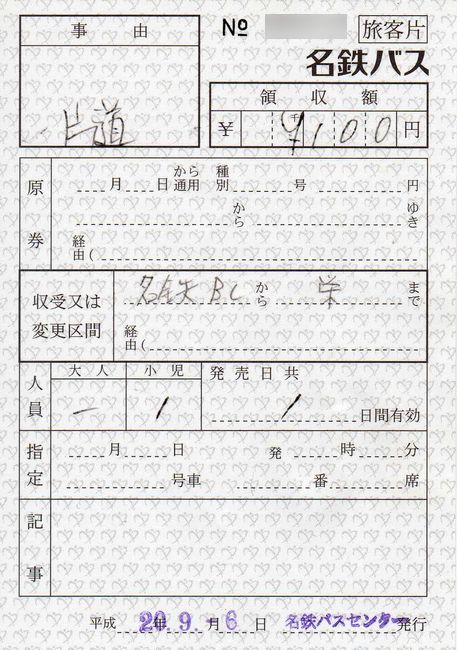 事由
片道
№
旅客片
名鉄バス
領収額
¥ 100円
原券
月 日から通用 種別 号 円
から ゆき
経由(
収受又は変更区間
名鉄BCから 栄まで
経由(
人員
大人 小児
一 1
発売日共
1 日間有効
指定
月 日 発 時 分
号車 番 席
記事
平成 20年 9.月 6日 名鉄バスセンター発行